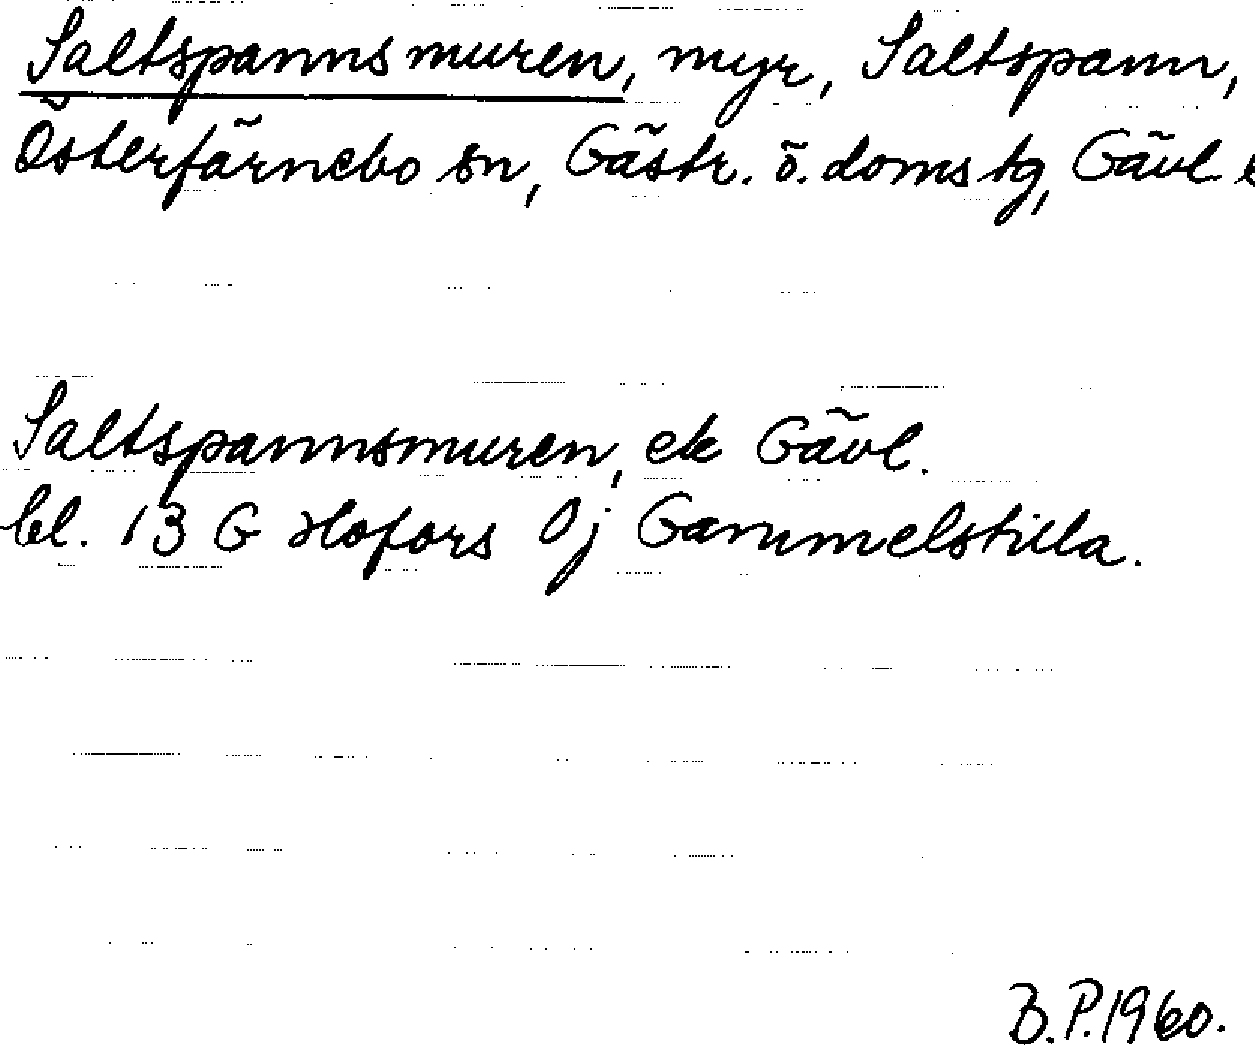 Saltspannsmuren, myr, Saltspann,
Österfärnebo sn, Gästr. ö. domstg, Gävl
Saltspannsmuren, ek Gävl.
bl. 13 G Hofors 0j Gammelstilla.
B.P. 1960.